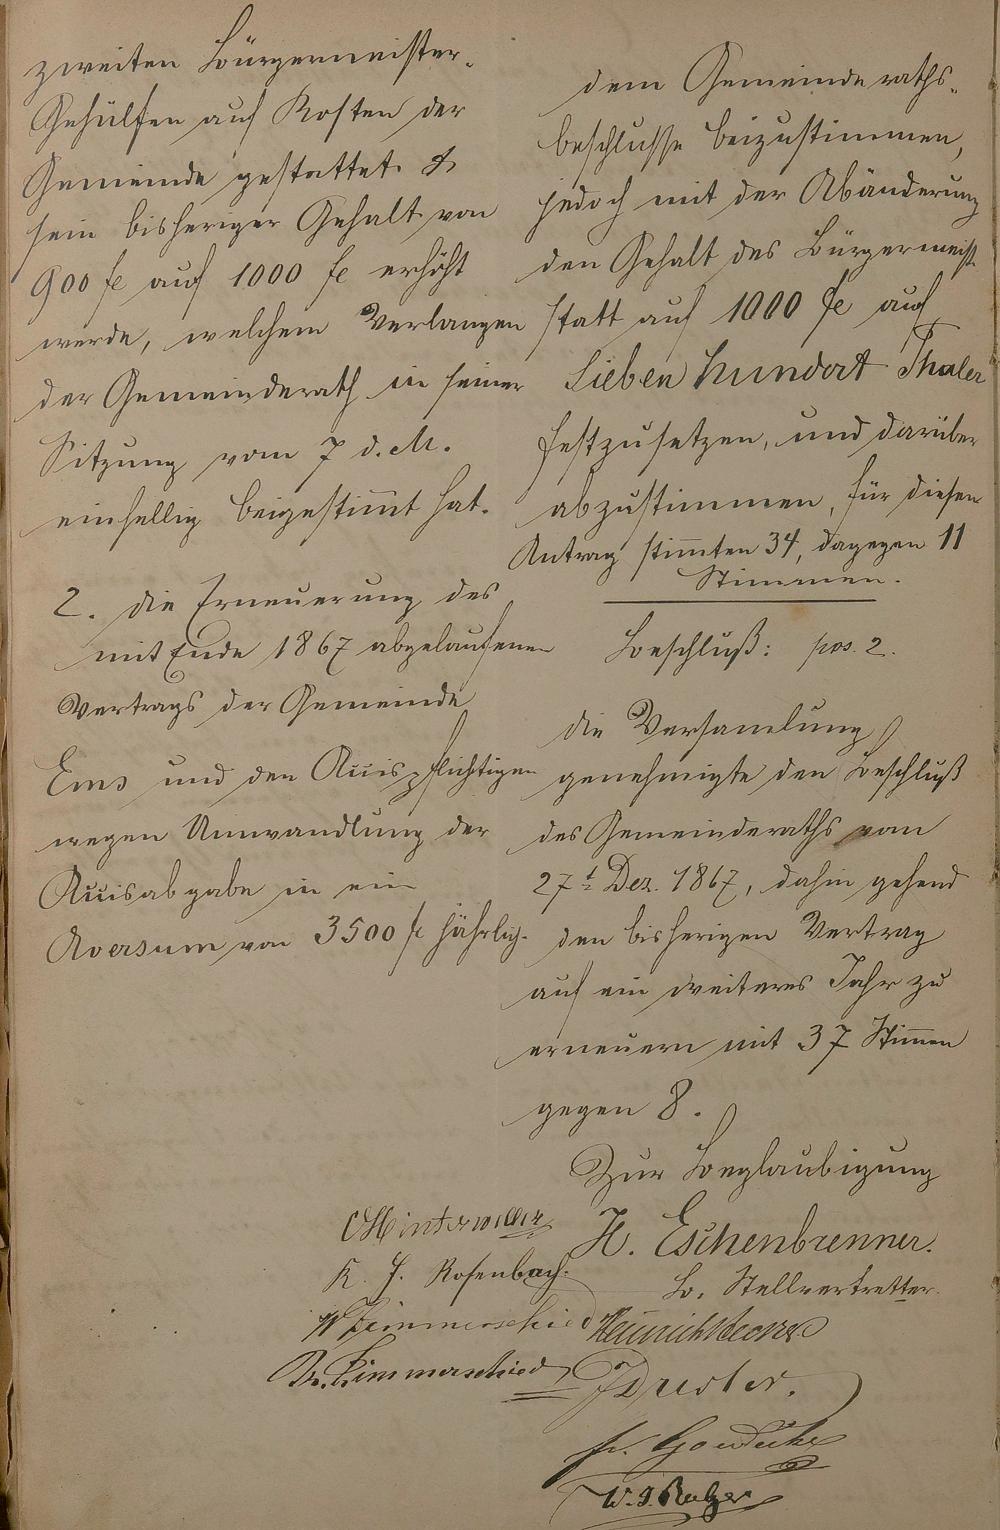 zweiten Bürgermeister-
Gehülfen auf Kosten der
Gemeinde gestattet &
sein bisheriger Gehalt von
900 fe auf 1000 fe erhöht
werde, welchem Verlangen
der Gemeinderath in seiner
Sitzung vom 7 d. M.
einhellig beigestim̄t hat.
2. die Erneuerung des
mit Ende 1867 abgelaufenen
Vertrags der Gemeinde
Ems und den Accispflichtigen
wegen Umwandlung der
Accisabgabe in ein
Aversum von 3500 f jährlich.
dem Gemeinderaths-
beschlusse beizustimmen,
jedoch mit der Abänderung
den Gehalt des Bürgermeist
statt auf 1000 fe auf
Sieben hundert Thaler
festzusetzen, und darüber
abzustimmen, für diesen
Antrag stim̄ten 34, dagegen 11
Stimmen.
Beschluß: pos. 2.
die Versamlung
genehmigte den Beschluß
des Gemeinderaths vom
27t Dez. 1867, dahin gehend
den bisherigen Vertrag
auf ein weiteres Jahr zu
erneuern mit 37 Stim̄en
gegen 8.
Zur Beglaubigung
H. Eschenbrenner.
B. Stellvertretter.
K. J. Rosenbach.
W Zimmerschied
Zimmerschied